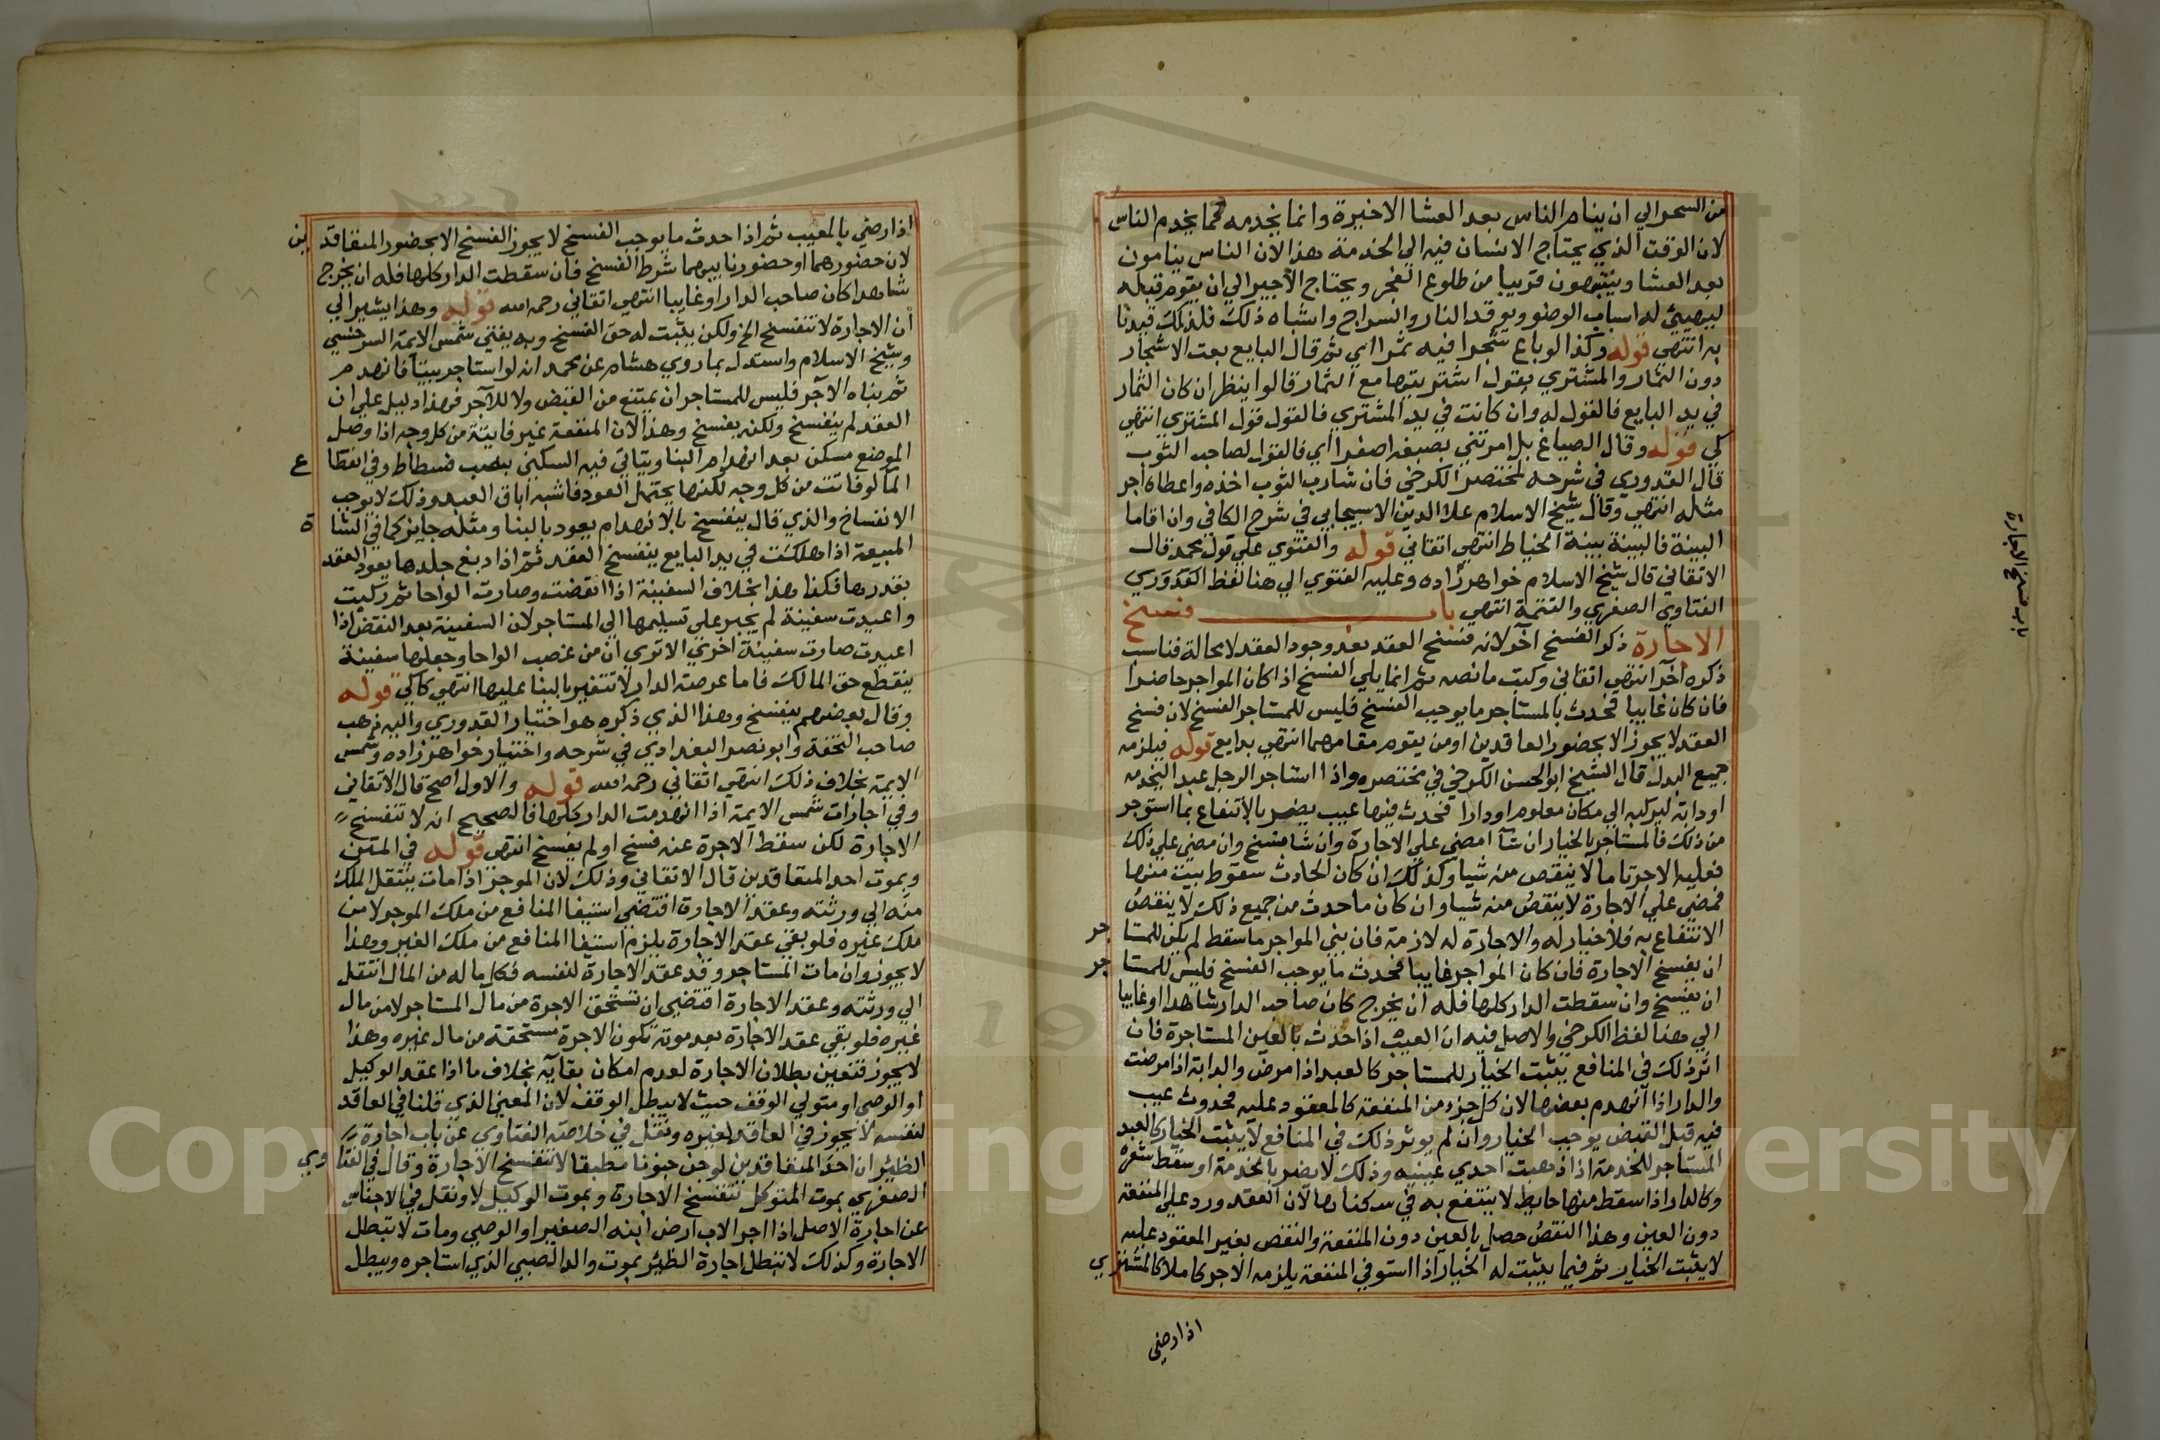 من السحر الي ان ينام الناس بعد العشا الاخيرة وانما يخدمه كما يخدم الناس
لان الوقت الذي يحتاج الانسان فيه الي الخدمة هذا لان الناس ينامون
بعد العشا وينتبهون قريبا من طلوع الفجر ويحتاج الاجير الي ان يقوم قبله
ليهيئ له اسباب الوضوء ويوقد النار والسراج واشباه ذلك فلذلك قيدنا
به انتهي قوله وكذا لو باع شجرا فيه ثمر اي ثم قال البايع بعت الاشجار
دون الثمار والمشتري يقول اشتريتها مع الثمار قالوا ينظر ان كان الثمار
في يد البايع فالقول له وان كانت في يد المشتري فالقول قول المشتري انتهي
كي قوله وقال الصباغ بل امرتني بصبغه اصفر اي فالقول لصاحب الثوب
قال القدوري في شرحه لمختصر الكرخي فان شا رب الثوب اخذه واعطاه اجر
مثله انتهي وقال شيخ الاسلام علا الدين الاسبيجابي في شرح الكافي وان اقاما
البينة فالبينة بينة الخياط انتهي اتقاني قوله والفتوي علي قول محمد قال
الاتقاني قال شيخ الاسلام خواهر زاده وعليه الفتوي الي هنا لفظ القدوري
الفتاوي الصغري والتتمة انتهي باب فسخ
الاجارة ذكر الفسخ آخر لان فسخ العقد بعد وجود العقد لا محالة فناسب
ذكره آخرا انتهي اتقاني وكتب ما نصه ثم انما يلي الفسخ اذا كان المواجر حاضرا
فان كان غايبا فحدث بالمستاجر ما يوجب الفسخ فليس للمستاجر الفسخ لان فسخ
العقد لا يجوز الا بحضور العاقدين او من يقوم مقامهما انتهي بدايع قوله فيلزمه
جميع البدل قال الشيخ ابو الحسن الكرخي في مختصره واذا استاجر الرجل عبدا ليخدمه
او دابة ليركبه الي مكان معلوم او دارا فحدث فيها عيب يضر بالانتفاع بما استوجر
من ذلك فالمستاجر بالخيار ان شآ امضي علي الاجارة وان شا فسخ وان مضي علي ذلك
فعليه الاجر تاما لا ينقص منه شيا وكذلك ان كان الحادث سقوط بيت منها
فمضي علي الاجارة لا ينقص منه شيا وان كان ما حدث من جميع ذلك لا ينقص
الانتفاع به فلا خيار له والاجارة له لازمة فان بني المواجر ما سقط لم يكن للمستا جر
ان يفسخ الاجارة فان كان المواجر غايبا فحدث ما يوجب الفسخ فليس للمستا جر
ان يفسخ وان سقطت الدار كلها فله ان يخرج كان صاحب الدار شاهدا او غايبا
الي هنا لفظ الكرخي والاصل فيه ان العيب اذا حدث بالعين المستاجرة فان
اثر ذلك في المنافع يثبت الخيار للمستاجر كالعبد اذا مرض والدابة اذا مرضت
والدار اذا انهدم بعضها لان كل جزء من المنفعة كالمعقود عليه فحدوث عيب
فيه قبل القبض يوجب الخيار وان لم يوثر ذلك في المنافع لا يثبت الخيار كالعبد
المستاجر للخدمة اذا ذهبت احدي عينيه وذلك لا يضر بالخدمة او سقط شعره
وكالدار اذا سقط منها حايط لا ينتفع به في سكناها لان العقد ورد علي المنفعة
دون العين وهذا النقص حصل بالعين دون المنفعة والنقص بغير المعقود عليه
لا يثبت الخيار ثم فيما يثبت له الخيار اذا استوفي المنفعة يلزمه الاجر كاملا كالمشتري
اذا رضي
باب فسخ الاجارة
اذا رضي بالمعيب ثم اذا حدث ما يوجب الفسخ لا يجوز الفسخ الا بحضور المتعاقد ين
لان حضورهما او حضور نايبهما شرط الفسخ فان سقطت الدار كلها فله ان يخرج
شاهدا كان صاحب الدار او غايبا انتهي اتقاني رحمه الله قوله وهذا يشير الي
ان الاجارة لا تنفسخ الخ ولكن يثبت له حق الفسخ وبه يفتي شمس الايمة السرخسي
وشيخ الاسلام واستدل بما روي هشام عن محمد انه لو استاجر بيتا فانهدم
ثم بناه الآجر فليس للمستاجر ان يمتنع من القبض ولا للآجر فهذا دليل علي ان
العقد لم ينفسخ ولكنه يفسخ وهذا لان المنفعة غير فايتة من كل وجه اذا وصل
الموضع مسكن بعد انهدام البنا ويتاتي فيه السكني بنصب فسطاط وفي انقطا ع
المآ لو فاتت من كل وجه لكنها يحتمل العود فاشبه اباق العبد وذلك لا يوجب
الانفساخ والذي قال ينفسخ بالانهدام يعود بالبنا ومثله جايز كما في الشا ة
المبيعة اذا هلكت في يد البايع ينفسخ العقد ثم اذا دبغ جلدها يعود العقد
بقدرها فكذا هذا بخلاف السفينة اذا انقضت وصارت الواحا ثم ركبت
واعيدت سفينة لم يجبر علي تسليمها الي المستاجر لان السفينة بعد النقض اذا
اعيدت صارت سفينة اخري الا تري ان من غصب الواحا وجعلها سفينة
ينقطع حق المالك فاما عرصة الدار لا تتغير بالبنا عليها انتهي كاكي قوله
وقال بعضهم ينفسخ وهذا الذي ذكره هو اختيار القدوري واليه ذهب
صاحب التحفة وابو نصر البغدادي في شرحه واختيار خواهر زاده وشمس
الايمة بخلاف ذلك انتهي اتقاني رحمه الله قوله والاول اصح قال الاتقاني
وفي اجارات شمس الايمة اذا انهدمت الدار كلها فالصحيح انه لا تنفسخ
الاجارة لكن سقط الاجرة عنه فسخ او لم يفسخ انتهي قوله في المتن
وبموت احد المتعاقدين قال الاتقاني وذلك لان الموجر اذا مات ينتقل الملك
منه الي ورثته وعقد الاجارة اقتضي استيفا المنافع من ملك الموجر لا من
ملك غيره فلو بقي عقد الاجارة يلزم استيفا المنافع من ملك الغير وهذا
لا يجوز وان مات المستاجر وقد عقد الاجارة لنفسه فكل ما له من المال انتقل
الي ورثته وعقد الاجارة اقتضي ان تستحق الاجرة من مال المستاجر لا من مال
غيره فلو بقي عقد الاجارة بعد موته تكون الاجرة مستحقة من مال غيره وهذا
لا يجوز فتعين بطلان الاجارة لعدم امكان بقآيه بخلاف ما اذا عقد الوكيل
او الوصي او متولي الوقف حيث لا يبطل الوقف لان المعني الذي قلنا في العاقد
لنفسه لا يجوز في العاقد لغيره ونقل في خلاصة الفتاوي عن باب اجارة
الظئر ان احد المتعاقدين لو جن جنونا مطبقا لا تنفسخ الاجارة وقال في الفتا وي
الصغري بموت المتوكل تنفسخ الاجارة وبموت الوكيل لا ونقل في الاجناس
عن اجارة الاصل اذا اجر الاب ارض ابنه الصغير او الوصي ومات لا تبطل
الاجارة وكذلك لا تبطل اجارة الظئر بموت والد الصبي الذي استاجره ويبطل
Copyright © King Saud University